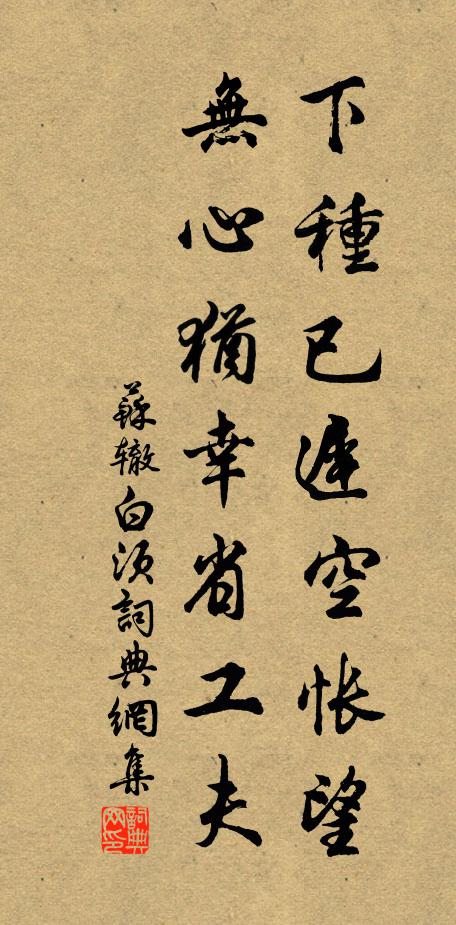 下種已遲空悵望
無心猶幸省工夫
蘇辙白須詞典網集
詞典網印